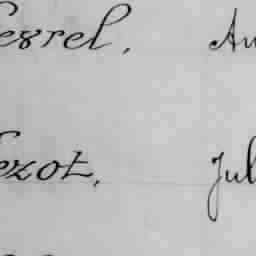 esrel. Au
ezot. Jul